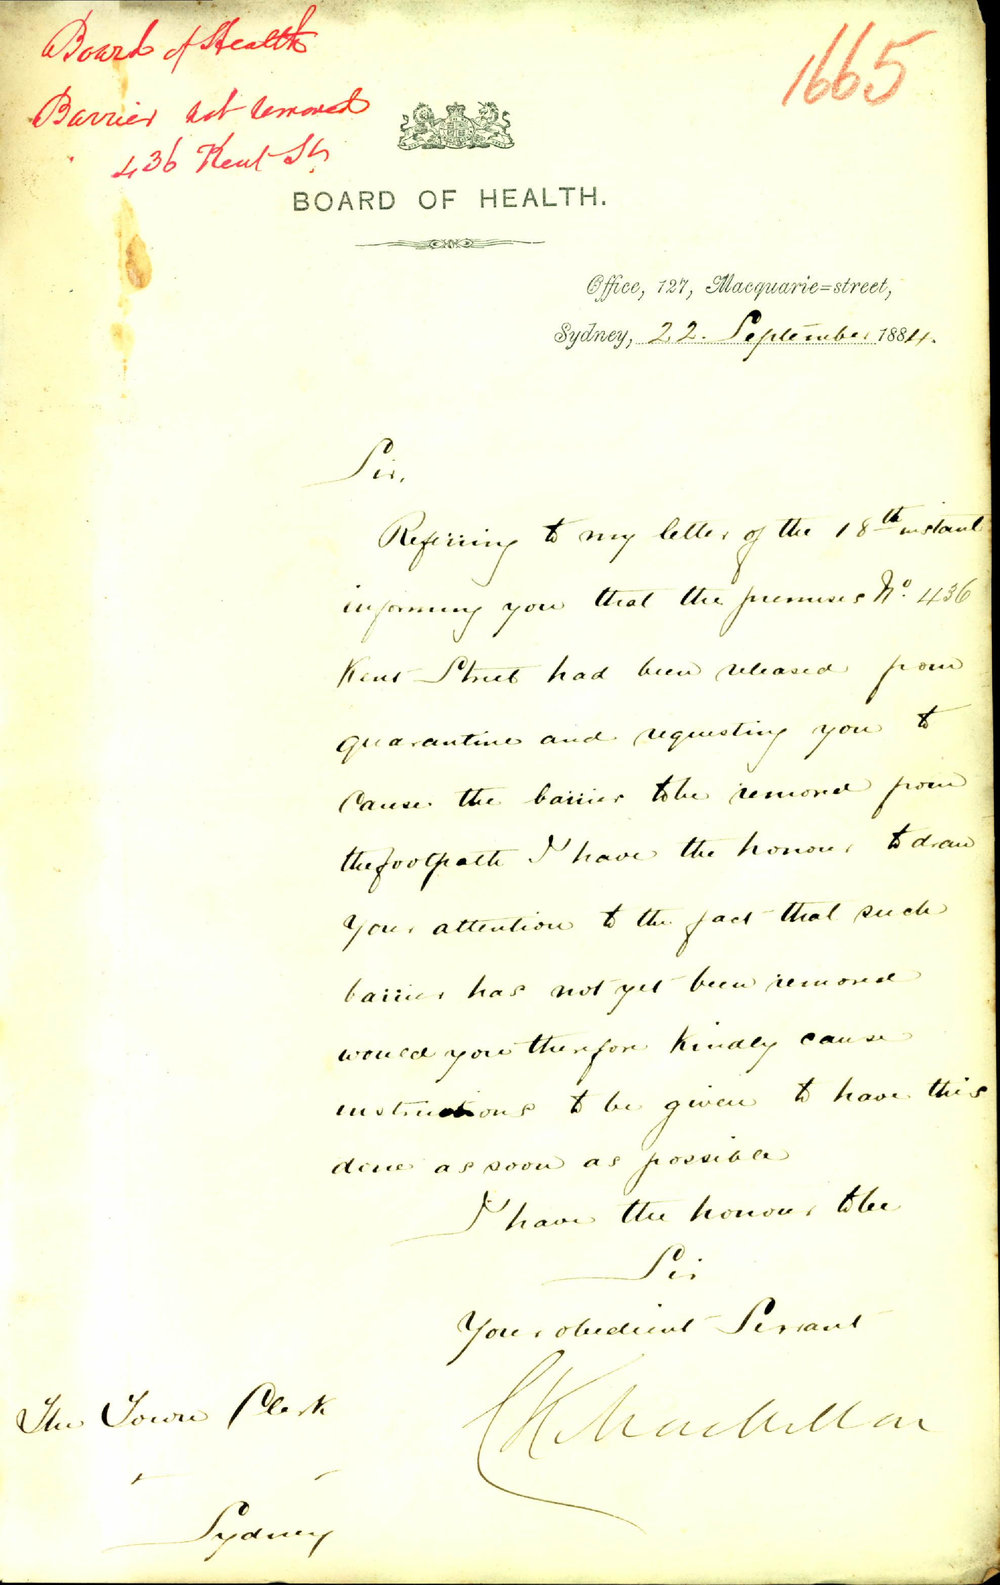 Board of Health
Barrier not removed
436 Kent St
1665
BOARD OF HEALTH.
Office, 127, Macquarie=street,
Sydney, 22. September 1884.
Sir,
Referring to my letter of the 18th instant
informing you that the premises No. 436
Kent Street had been released from
quarantine and requesting you to
cause the barrier to be removed from
the footpath I have the honour to draw
your attention to the fact that such
barrier has not yet been removed
would you therefore kindly cause
instructions to be given to have this
done as soon as possible
I have the honour to be
Sir
Your obedient Servant
The Town Clerk
Sydney